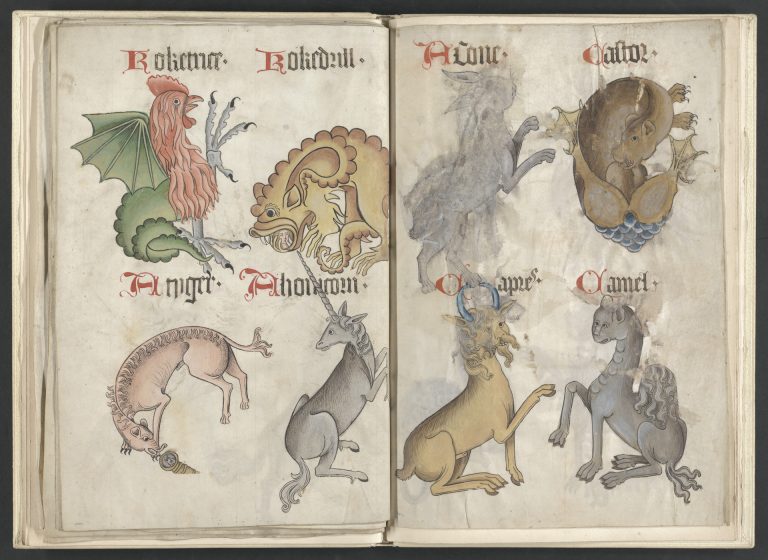 Koketrice· Kokedrill·
A tyger· A honicorn·
A Cone· Castor·
Capres· Camel·